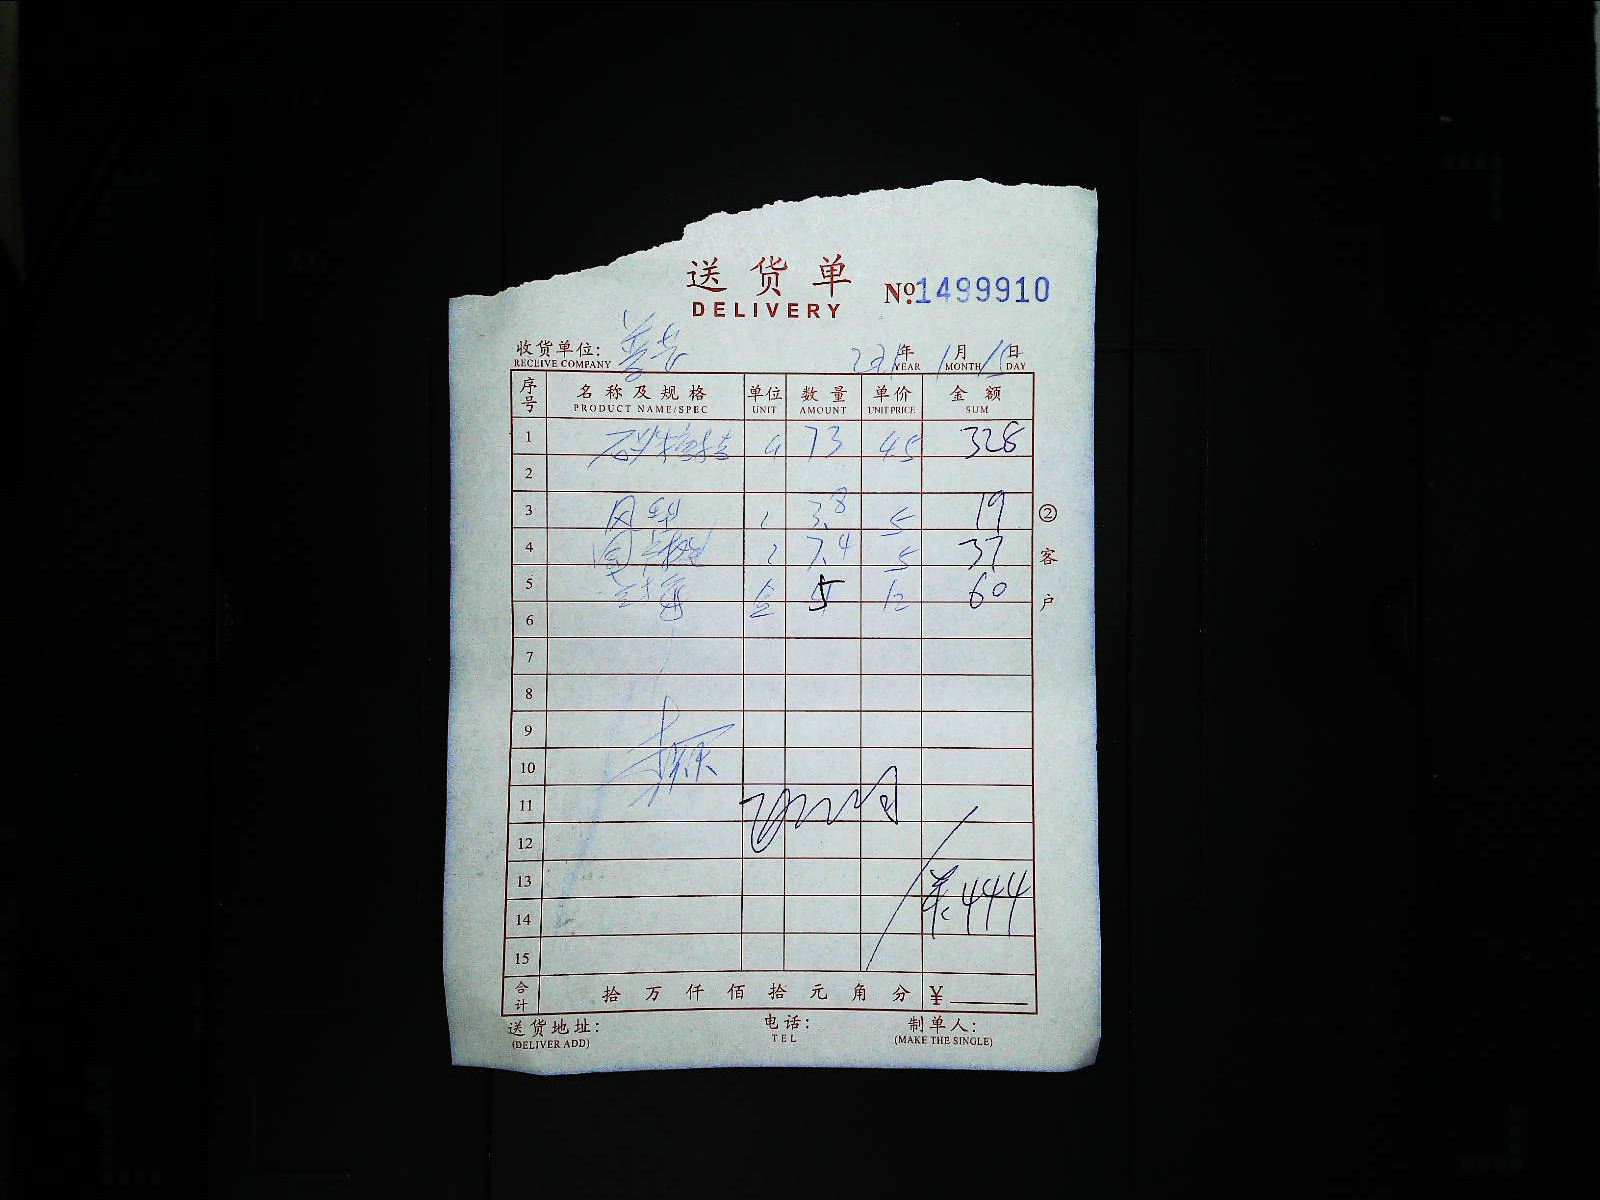 送货单
DELIVERY
No.1499910
收货单位: 年 1月 15日
RECEIVE COMPANY YEAR MONTH DAY
序号 名称及规格 单位 数量 单价 金额
PRODUCT NAME/SPEC UNIT AMOUNT UNIT PRICE SUM
1 砂糖桔 73 45 328
2
3 3.8 5 19
4 7.4 5 37
5 5 12 60
6
7
8
9
10
11
12
13 444
14
15
合计 拾 万 仟 佰 拾 元 角 分 ¥
送货地址: 电话: 制单人:
(DELIVER ADD) TEL (MAKE THE SINGLE)
② 客户